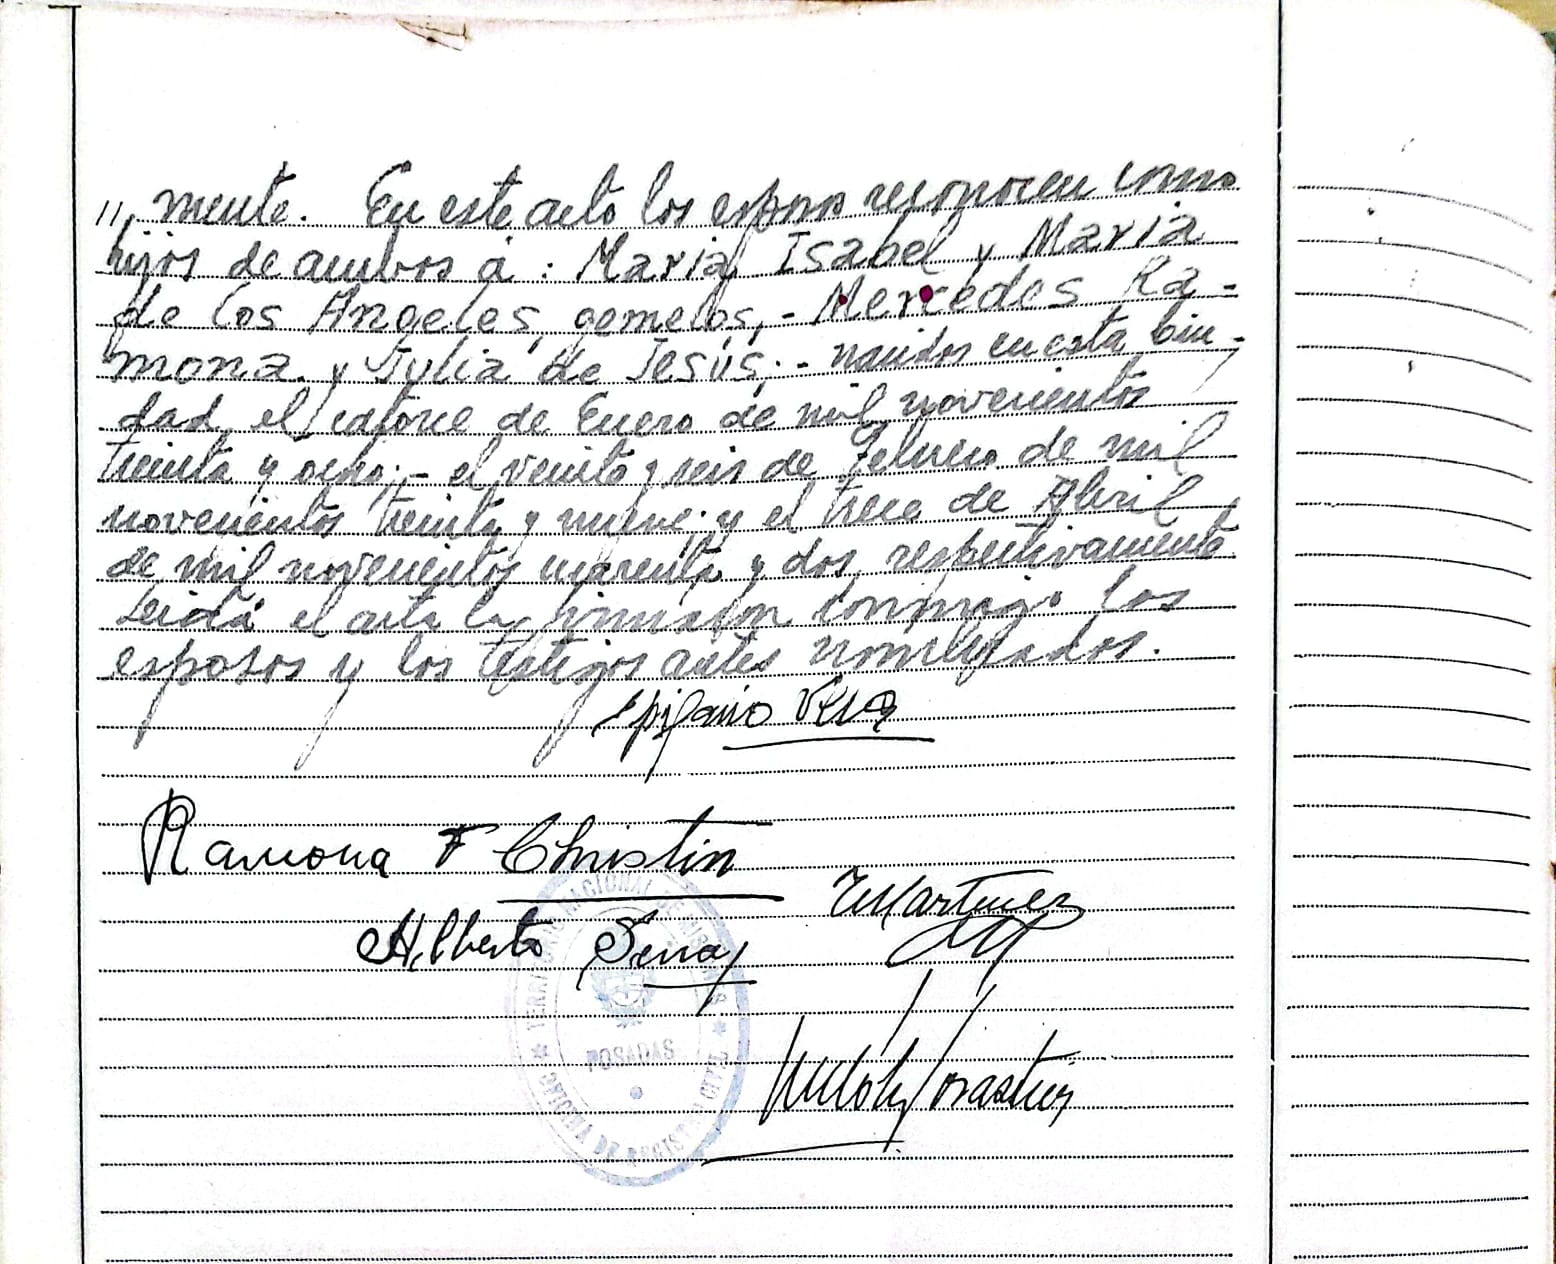 11, mente. En este acto los esposos reconocen como
hijos de ambos á: Maria Isabel y Maria
de los Angeles, gemelos,- Mercedes Ra-
mona y Julia de Jesús;- nacidos en esta ciu-
dad, el catorce de Enero de mil novecientos
treinta y ocho;- el veinte y seis de Febrero de mil
novecientos treinta y nueve y el trece de Abril
de mil novecientos cuarenta y dos, respectivamente
Leida el acta la firmaron conmigo los
esposos y los testigos antes nombrados.
Epifanio Vera
Ramona F Christin
Martinez
Alberto Sena
TERRITORIO NACIONAL DE MISIONES
POSADAS
OFICINA DE REGISTRO CIVIL